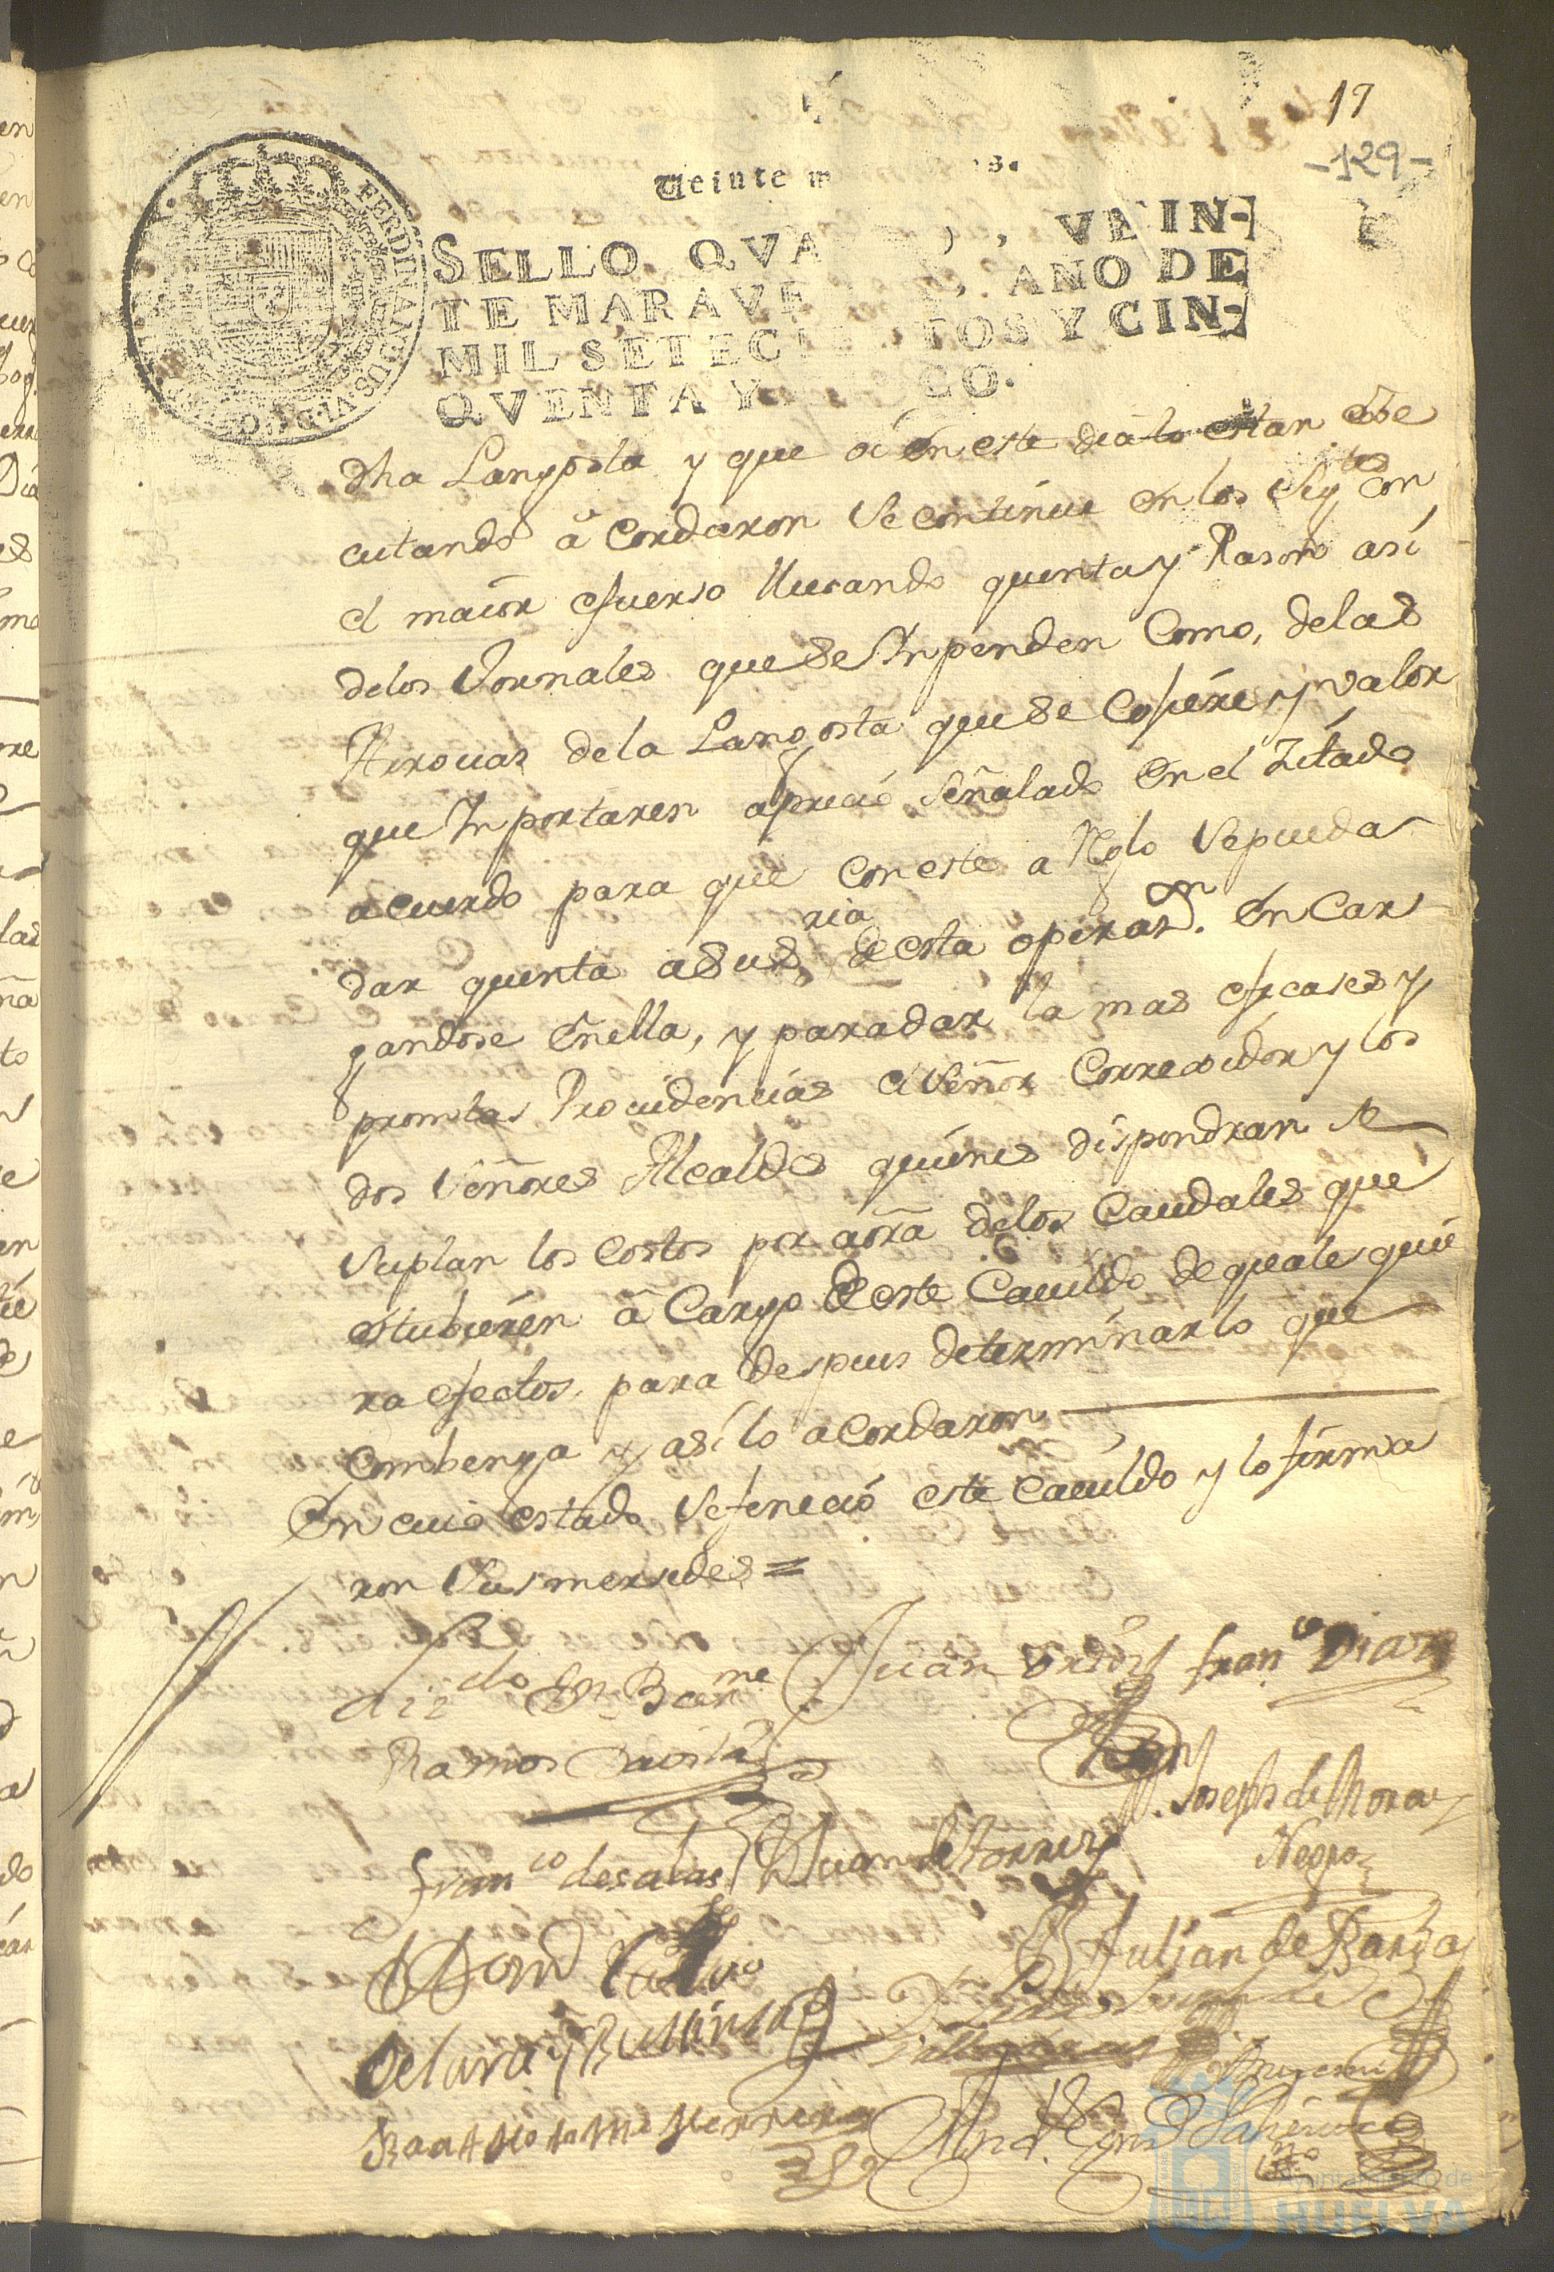 17
-129-
Veinte m s.
SELLO QVA , VEIN-
TE MARAVE , AÑO DE
MIL SETECIE TOS Y CIN-
QVENTA Y CO.
FERDINANDUS VI D G
dha Langosta y que oi en este dia lo estan exse
cutando acordaron se continue en los sigtes con
el maior esfuerso llevando quenta y Rason así
delos Jornales que se Inpenden Como, delas
Arrovas dela Langosta que se Cojiere y valor
que Inportaren a precio señalado en el Zitado
acuerdo para que con este arreglo se pueda
dar quenta a sus ria de esta operasn. encar
gandose en ella, y para dar la mas eficases y
promtas Providencias el señor Corregidor y los
dos señores Alcaldes quienes dispondran se
suplan los costos por aora delos Caudales que
estubieren a Cargo de este Cavildo de quales quie
ra efectos, para despues determinarlo que
combenga y así lo acordaron
En cuio estado se feneció este cavildo y lo firma
ron sus mersedes =
Lizdo Dn Barme
Juan Ordoñ
franco Diaz
Ramos Davila
Joseph de Mora
Negro
franco de salas
Juan de torres
Julian de Barba
de Lara y Bu
Herrera
Ayuntamiento de
HUELVA